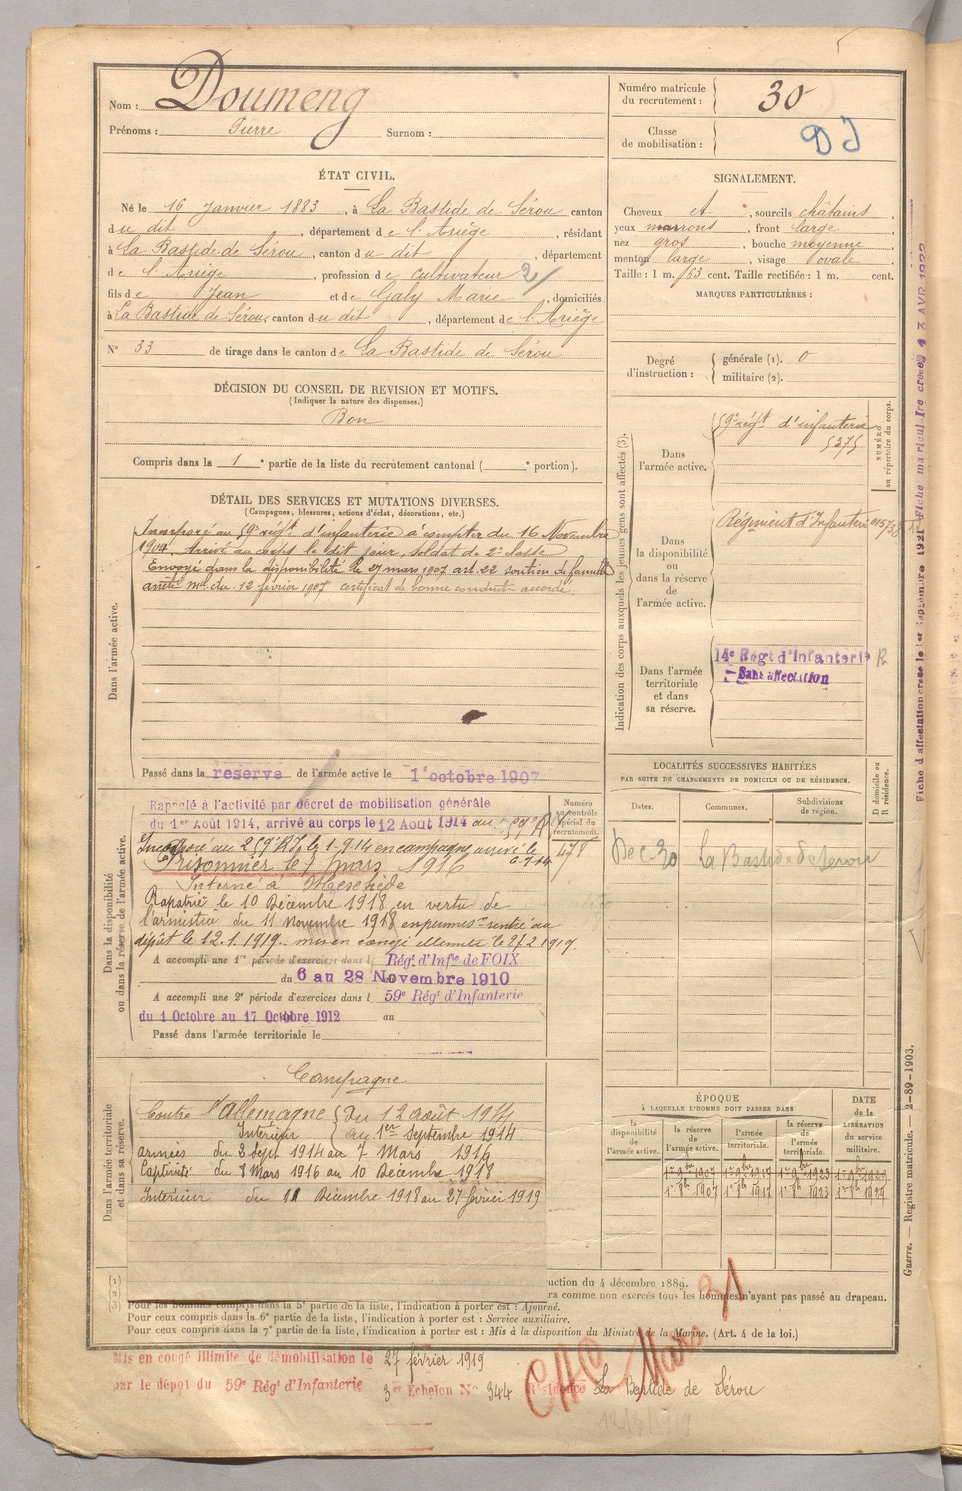 Nom : Doumeng
Prénoms : Pierre Surnom :
ÉTAT CIVIL.
Né le 16 Janvier 1883, à La Bastide de Sérou canton
du dit, département de l'Ariège, résidant
à La Bastide de Sérou, canton du dit, département
de l'Ariège, profession de cultivateur 2/
fils de Jean et de Galy Marie, domiciliés
à La Bastide de Sérou, canton du dit, département de l'Ariège
N° 33 de tirage dans le canton de La Bastide de Sérou
DÉCISION DU CONSEIL DE REVISION ET MOTIFS.
(Indiquer la nature des dispenses.)
Bon
Compris dans la 1e partie de la liste du recrutement cantonal ( e portion).
DÉTAIL DES SERVICES ET MUTATIONS DIVERSES.
(Campagnes, blessures, actions d'éclat, décorations, etc.)
Dans l'armée active.
Incorporé au 59e régt d'infanterie à compter du 16 Novembre
1904. Arrivé au corps le dit jour, soldat de 2e classe
Envoyé dans la disponibilité le 27 mars 1907 art. 22 soutien de famille
arrêté mel du 12 février 1907 certificat de bonne conduite accordé.
Passé dans la réserve de l'armée active le 1 octobre 1907
Dans la disponibilité
ou dans la réserve de l'armée active.
Numéro
au contrôle
spécial du
recrutement.
478
Rappelé à l'activité par décret de mobilisation générale
du 1er Août 1914, arrivé au corps le 12 Aout 1914 au 59e R.I.
Incorporé au 259e R.I. le 1-9-14 en campagne arrivé le
Prisonnier le 7 mars 1916
Interné à Meschède
Rapatrié le 10 Décembre 1918 en vertu de
l'armistice du 11 Novembre 1918 en permission rentré au
dépôt le 12.1.1919. mis en congé illimité le 27.2.1919.
A accompli une 1re période d'exercices dans l Régt d'Infie de FOIX
du 6 au 28 Novembre 1910
A accompli une 2e période d'exercices dans l 59e Régt d'Infanterie
du 1 Octobre au 17 Octobre 1912 au
Passé dans l'armée territoriale le
Dans l'armée territoriale
et dans sa réserve.
Campagne
Contre l'Allemagne du 12 août 1914
Intérieur au 1er septembre 1914
armées du 2 Sept 1914 au 7 Mars 1916
Captivité du 8 Mars 1916 au 10 Décembre 1918
Intérieur du 11 Décembre 1918 au 27 février 1919
Numéro matricule
du recrutement : 30
Classe
de mobilisation : DJ
SIGNALEMENT.
Cheveux et, sourcils châtains,
yeux marrons, front large
nez gros, bouche moyenne
menton large, visage ovale.
Taille : 1 m. 63 cent. Taille rectifiée : 1 m. cent.
MARQUES PARTICULIÈRES :
Degré
d'instruction :
générale (1). 0
militaire (2).
Indication des corps auxquels les jeunes gens sont affectés (3).
NUMÉRO
au répertoire du corps.
Dans
l'armée active.
59e régt d'infanterie
5375
Dans
la disponibilité
ou
dans la réserve
de
l'armée active.
Régiment d'Infanterie
Dans l'armée
territoriale
et dans
sa réserve.
14e Régt d'Infanterie R
Sans affectation
LOCALITÉS SUCCESSIVES HABITÉES
PAR SUITE DE CHANGEMENTS DE DOMICILE OU DE RÉSIDENCE.
Dates. Communes. Subdivisions
de région.
D domicile ou
R résidence.
Dec-30 La Bastide de Sérou
ÉPOQUE
À LAQUELLE L'HOMME DOIT PASSER DANS
la
disponibilité
de
l'armée active.
la réserve
de
l'armée active.
l'armée
territoriale.
la réserve
de
l'armée
territoriale.
DATE
de la
LIBÉRATION
du service
militaire.
1er 9bre 1907 1er 9bre 1917 1er 9bre 1923 1er 9bre 1929
1er 8bre 1907 1er 8bre 1917 1er 8bre 1923 1er 8bre 1929
Fiche d'affectation créée le 1er Septembre 1921
Fiche matriculaire créée, 3 AVR 1922
Guerre. — Registre matricule. — 2-89-1903.
(1)
(2)
(3)
uction du 4 décembre 1889.
ra comme non exercés tous les hommes n'ayant pas passé au drapeau.
Pour les hommes compris dans la 5e partie de la liste, l'indication à porter est : Ajourné.
Pour ceux compris dans la 6e partie de la liste, l'indication à porter est : Service auxiliaire.
Pour ceux compris dans la 7e partie de la liste, l'indication à porter est : Mis à la disposition du Ministre de la Marine. (Art. 4 de la loi.)
Mis en congé illimité de démobilisation le 27 février 1919
par le dépôt du 59e Régt d'Infanterie 3er Echelon N° 344 Résidence La Bastide de Sérou
Mars 31
12/3/1919